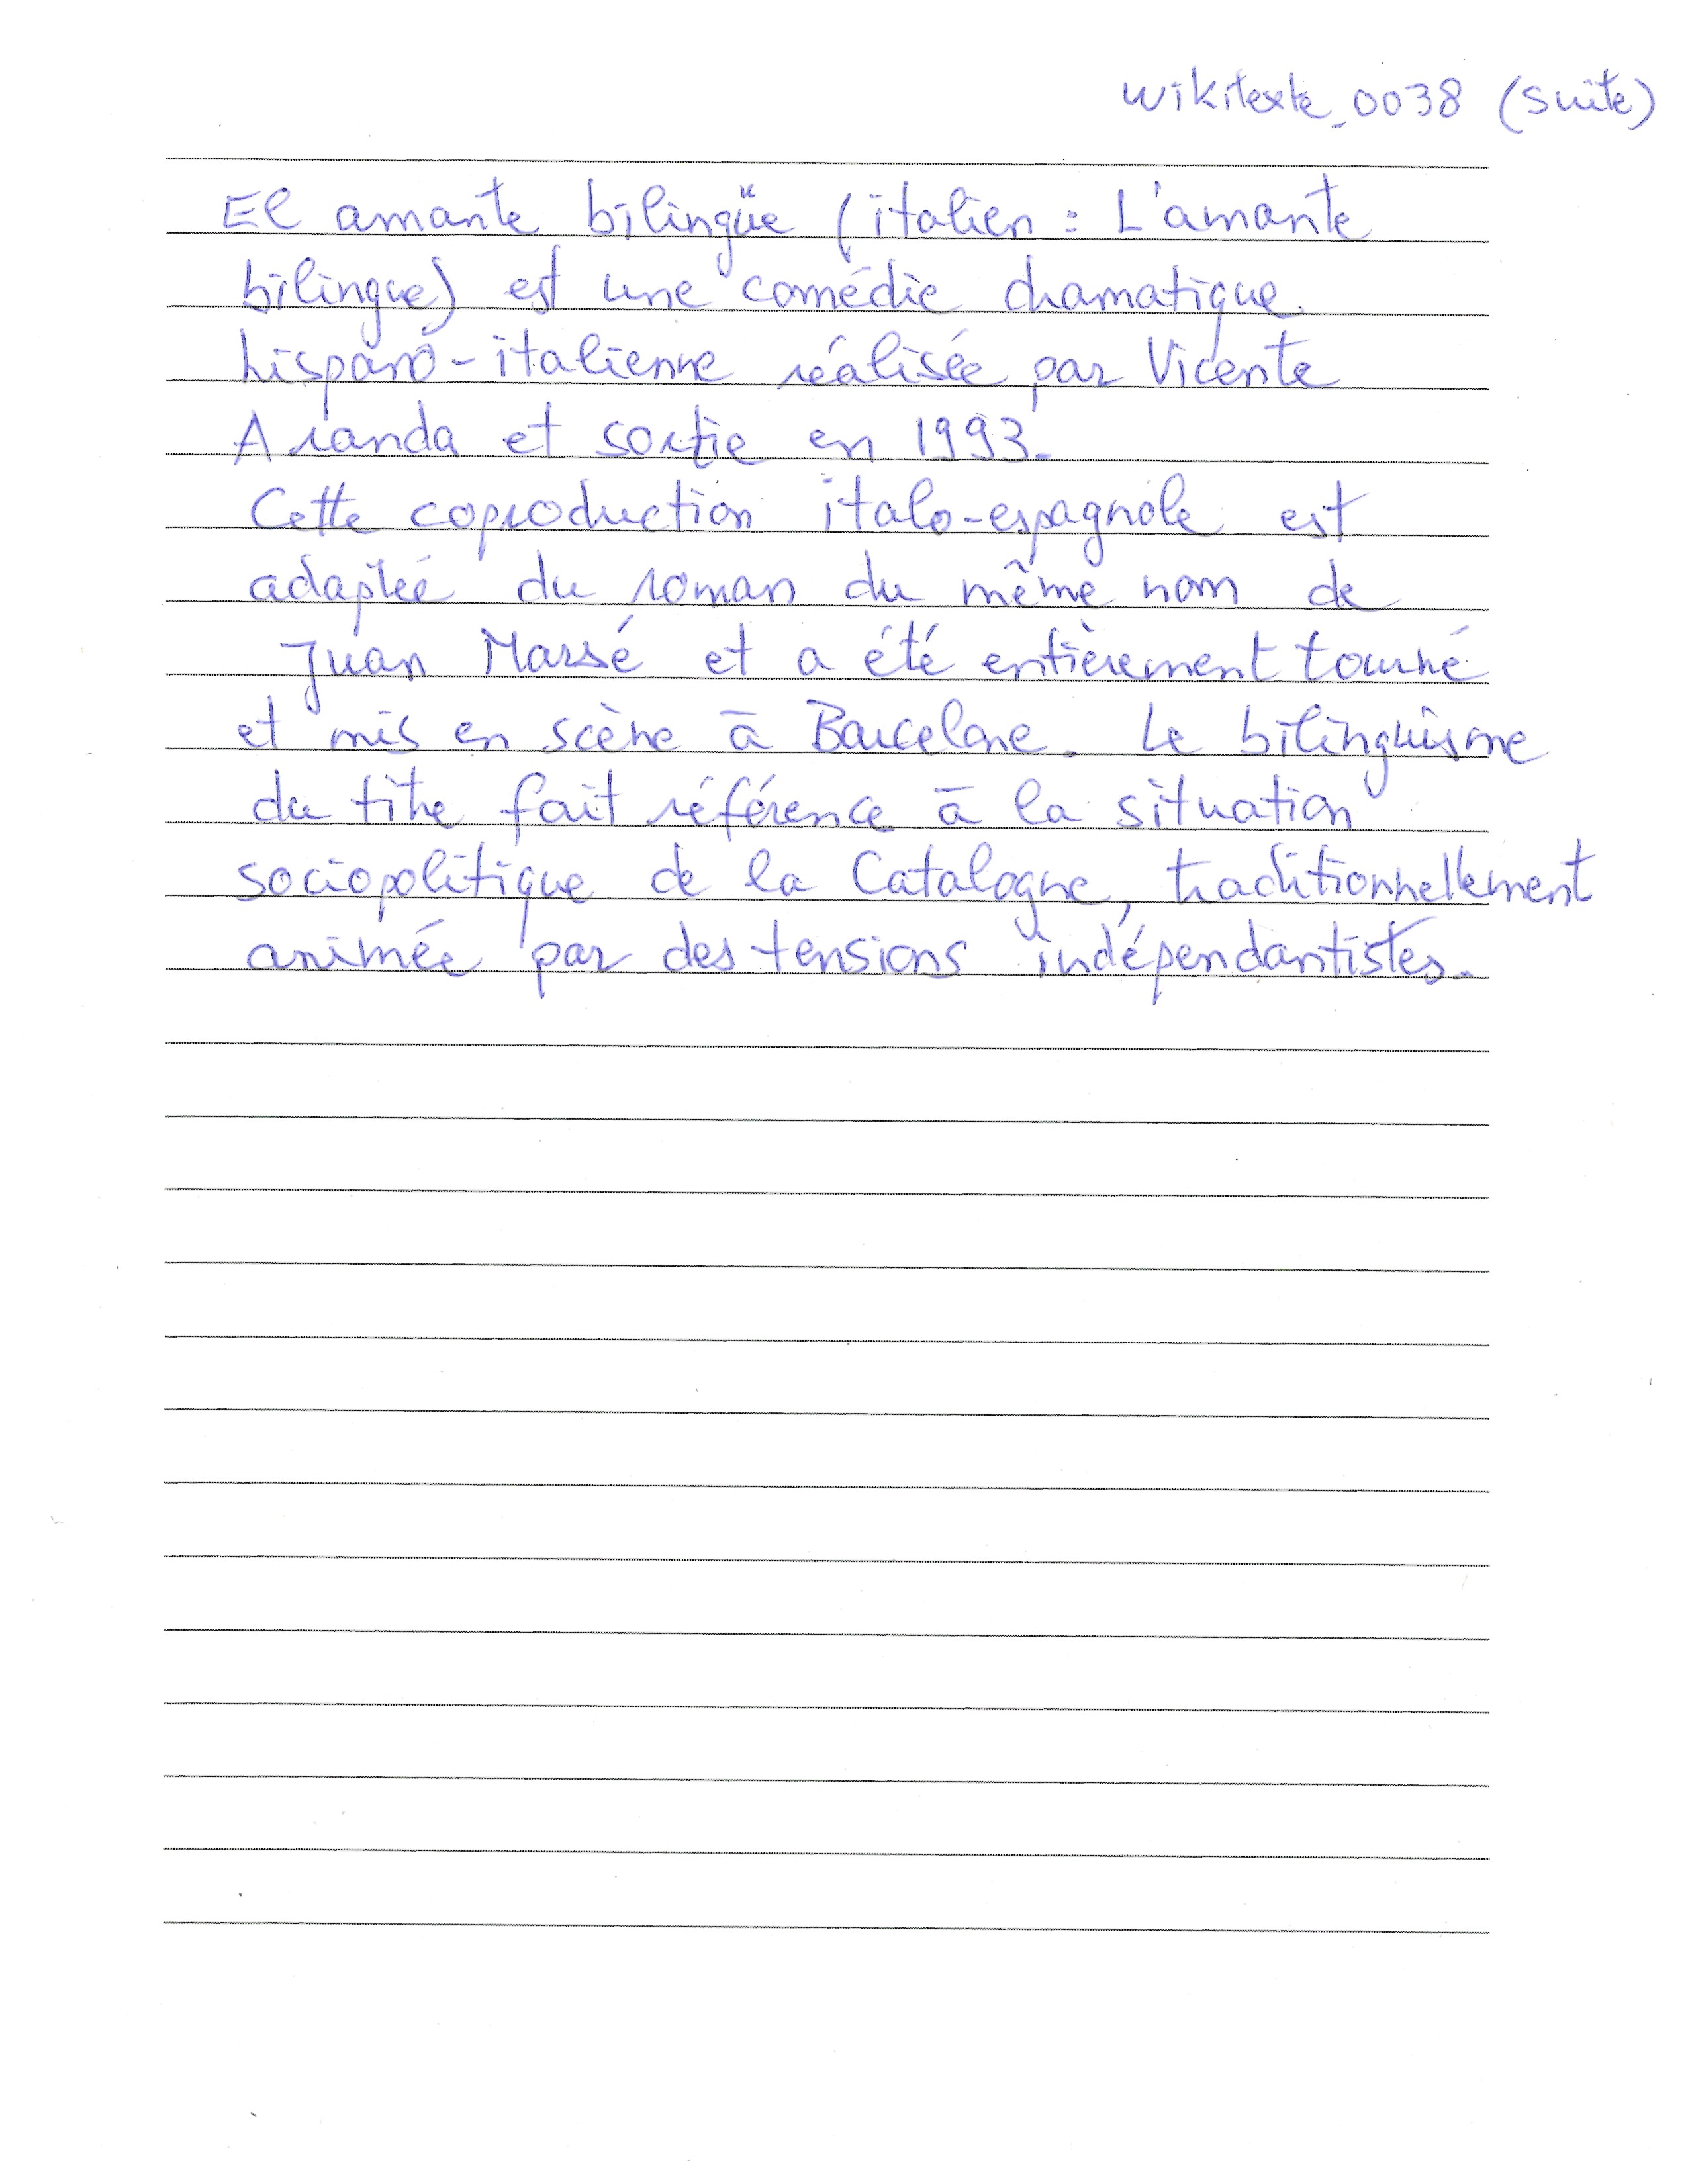 Wikitexte_0038 (suite)
El amante bilingüe (italien : L'amante
bilingue) est une comédie dramatique
hispano-italienne réalisée par Vicente
Aranda et sortie en 1993.
Cette coproduction italo-espagnole est
adaptée du roman du même nom de
Juan Marsé et a été entièrement tourné
et mis en scène à Barcelone. Le bilinguisme
du titre fait référence à la situation
sociopolitique de la Catalogne, traditionnellement
animée par des tensions indépendantistes.